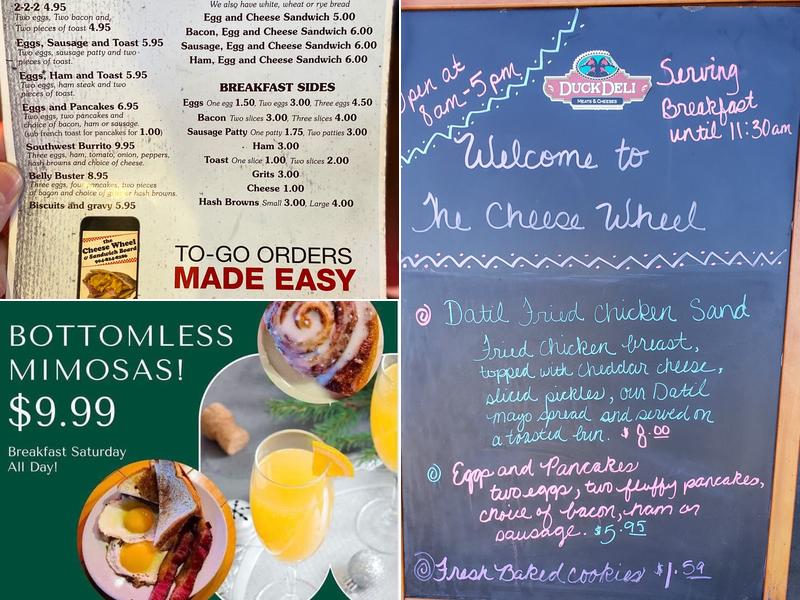 2-2-2 4.95
Two eggs, Two bacon and,
Two pieces of toast 4.95
Eggs, Sausage and Toast 5.95
Two eggs, sausage patty and two
pieces of toast.
Eggs, Ham and Toast 5.95
Two eggs, ham steak and two
pieces of toast.
Eggs and Pancakes 6.95
Two eggs, two pancakes and
choice of bacon, ham or sausage.
(sub french toast for pancakes for 1.00)
Southwest Burrito 9.95
Three eggs, ham, tomato, onion, peppers,
hash browns and choice of cheese.
Belly Buster 8.95
Three eggs, four pancakes, two pieces
of bacon and choice of grits or hash browns.
Biscuits and gravy 5.95
We also have white, wheat or rye bread
Egg and Cheese Sandwich 5.00
Bacon, Egg and Cheese Sandwich 6.00
Sausage, Egg and Cheese Sandwich 6.00
Ham, Egg and Cheese Sandwich 6.00
BREAKFAST SIDES
Eggs One egg 1.50, Two eggs 3.00, Three eggs 4.50
Bacon Two slices 3.00, Three slices 4.00
Sausage Patty One patty 1.75, Two patties 3.00
Ham 3.00
Toast One slice 1.00, Two slices 2.00
Grits 3.00
Cheese 1.00
Hash Browns Small 3.00, Large 4.00
the
Cheese Wheel
& Sandwich Board
TO-GO ORDERS
MADE EASY
Open at
8am-5pm
DUCK DELI
MEATS & CHEESES
Serving
Breakfast
until 11:30am
Welcome to
The Cheese Wheel
Datil Fried Chicken Sand
Fried Chicken breast,
topped with cheddar cheese,
sliced pickles, our Datil
mayo spread and served on
a toasted bun. $8.00
Eggs and Pancakes
two eggs, two fluffy pancakes,
choice of bacon, ham or
sausage. $5.95
Fresh Baked cookies $1.59
BOTTOMLESS
MIMOSAS!
$9.99
Breakfast Saturday
All Day!